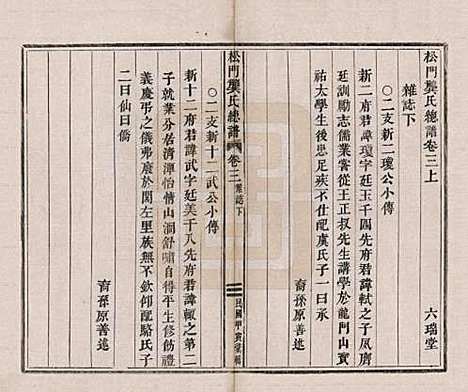 松門龔氏總譜卷三上
六瑞堂
雜誌下
○二支新二瓊公小傳
新二府君諱瓊字廷玉千四先府君諱軾之子夙膺
廷訓勵志儒業嘗從王正叔先生講學於龍門山寶
祐太學生後以患足疾不仕配虞氏子一曰承
裔孫原善述
松門龔氏總譜 卷三 雜誌下
三
民國甲寅重輯
○二支新十二武公小傳
新十二府君諱武字廷美千八先府君諱轍之第二
子就業分居清潭怡情山澗舒嘯自得平生修飭禮
義慶弔之儀弗廢於閭左里族無不欽仰配駱氏子
二曰仙曰僑
裔孫原善述